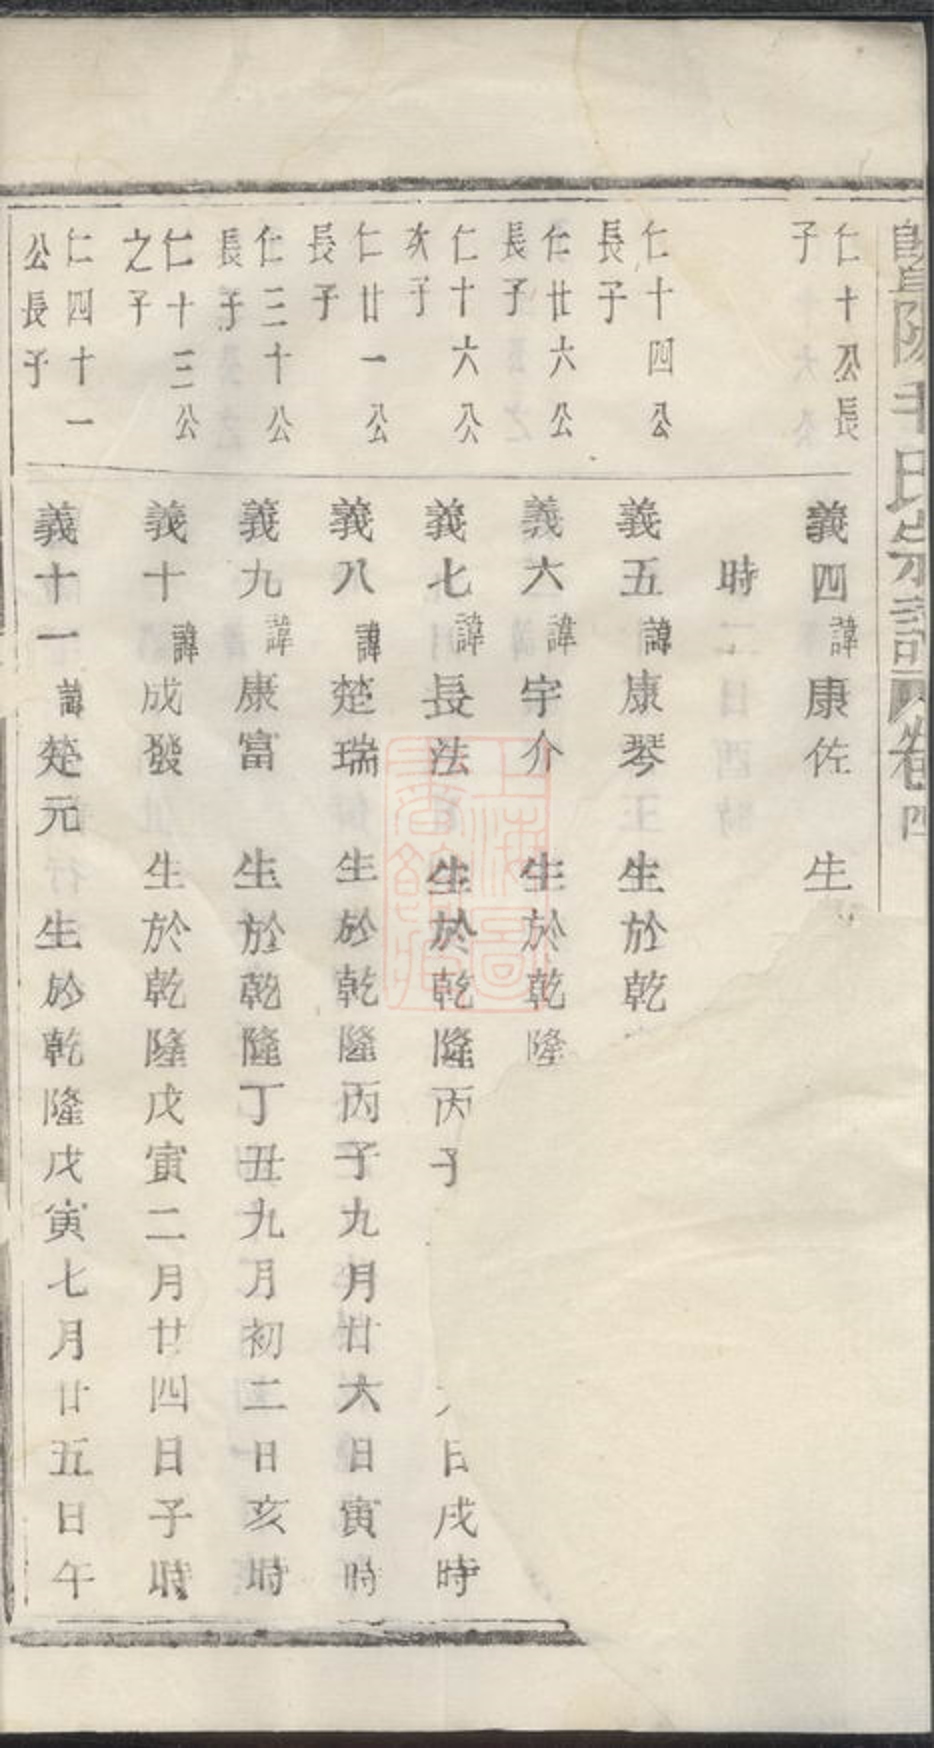 仁十公長
子
義四諱康佐 生
時
仁十四公
長子
義五諱康琴 生於乾
仁廿六公
長子
義六諱宇介 生於乾隆
仁十六公
次子
義七諱長法 生於乾隆丙子
日戌時
仁廿一公
長子
義八諱楚瑞 生於乾隆丙子九月廿六日寅時
仁三十公
長子
義九諱康富 生於乾隆丁丑九月初二日亥時
仁十三公
之子
義十諱成發 生於乾隆戊寅二月廿四日子時
仁四十一
公長子
義十一諱楚元 生於乾隆戊寅七月廿五日午